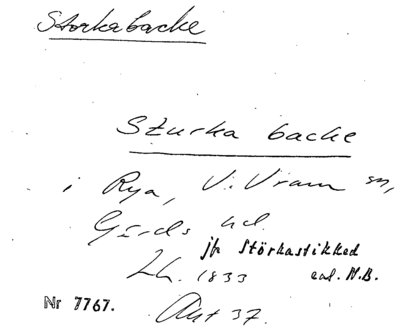 Storkabacke
Sturka backe
i Rya, V. Vram sn,
Gärds hd.
jfr Störkastikked
Lh. 1833 enl. N.B.
Nr 7767. Ant 37.